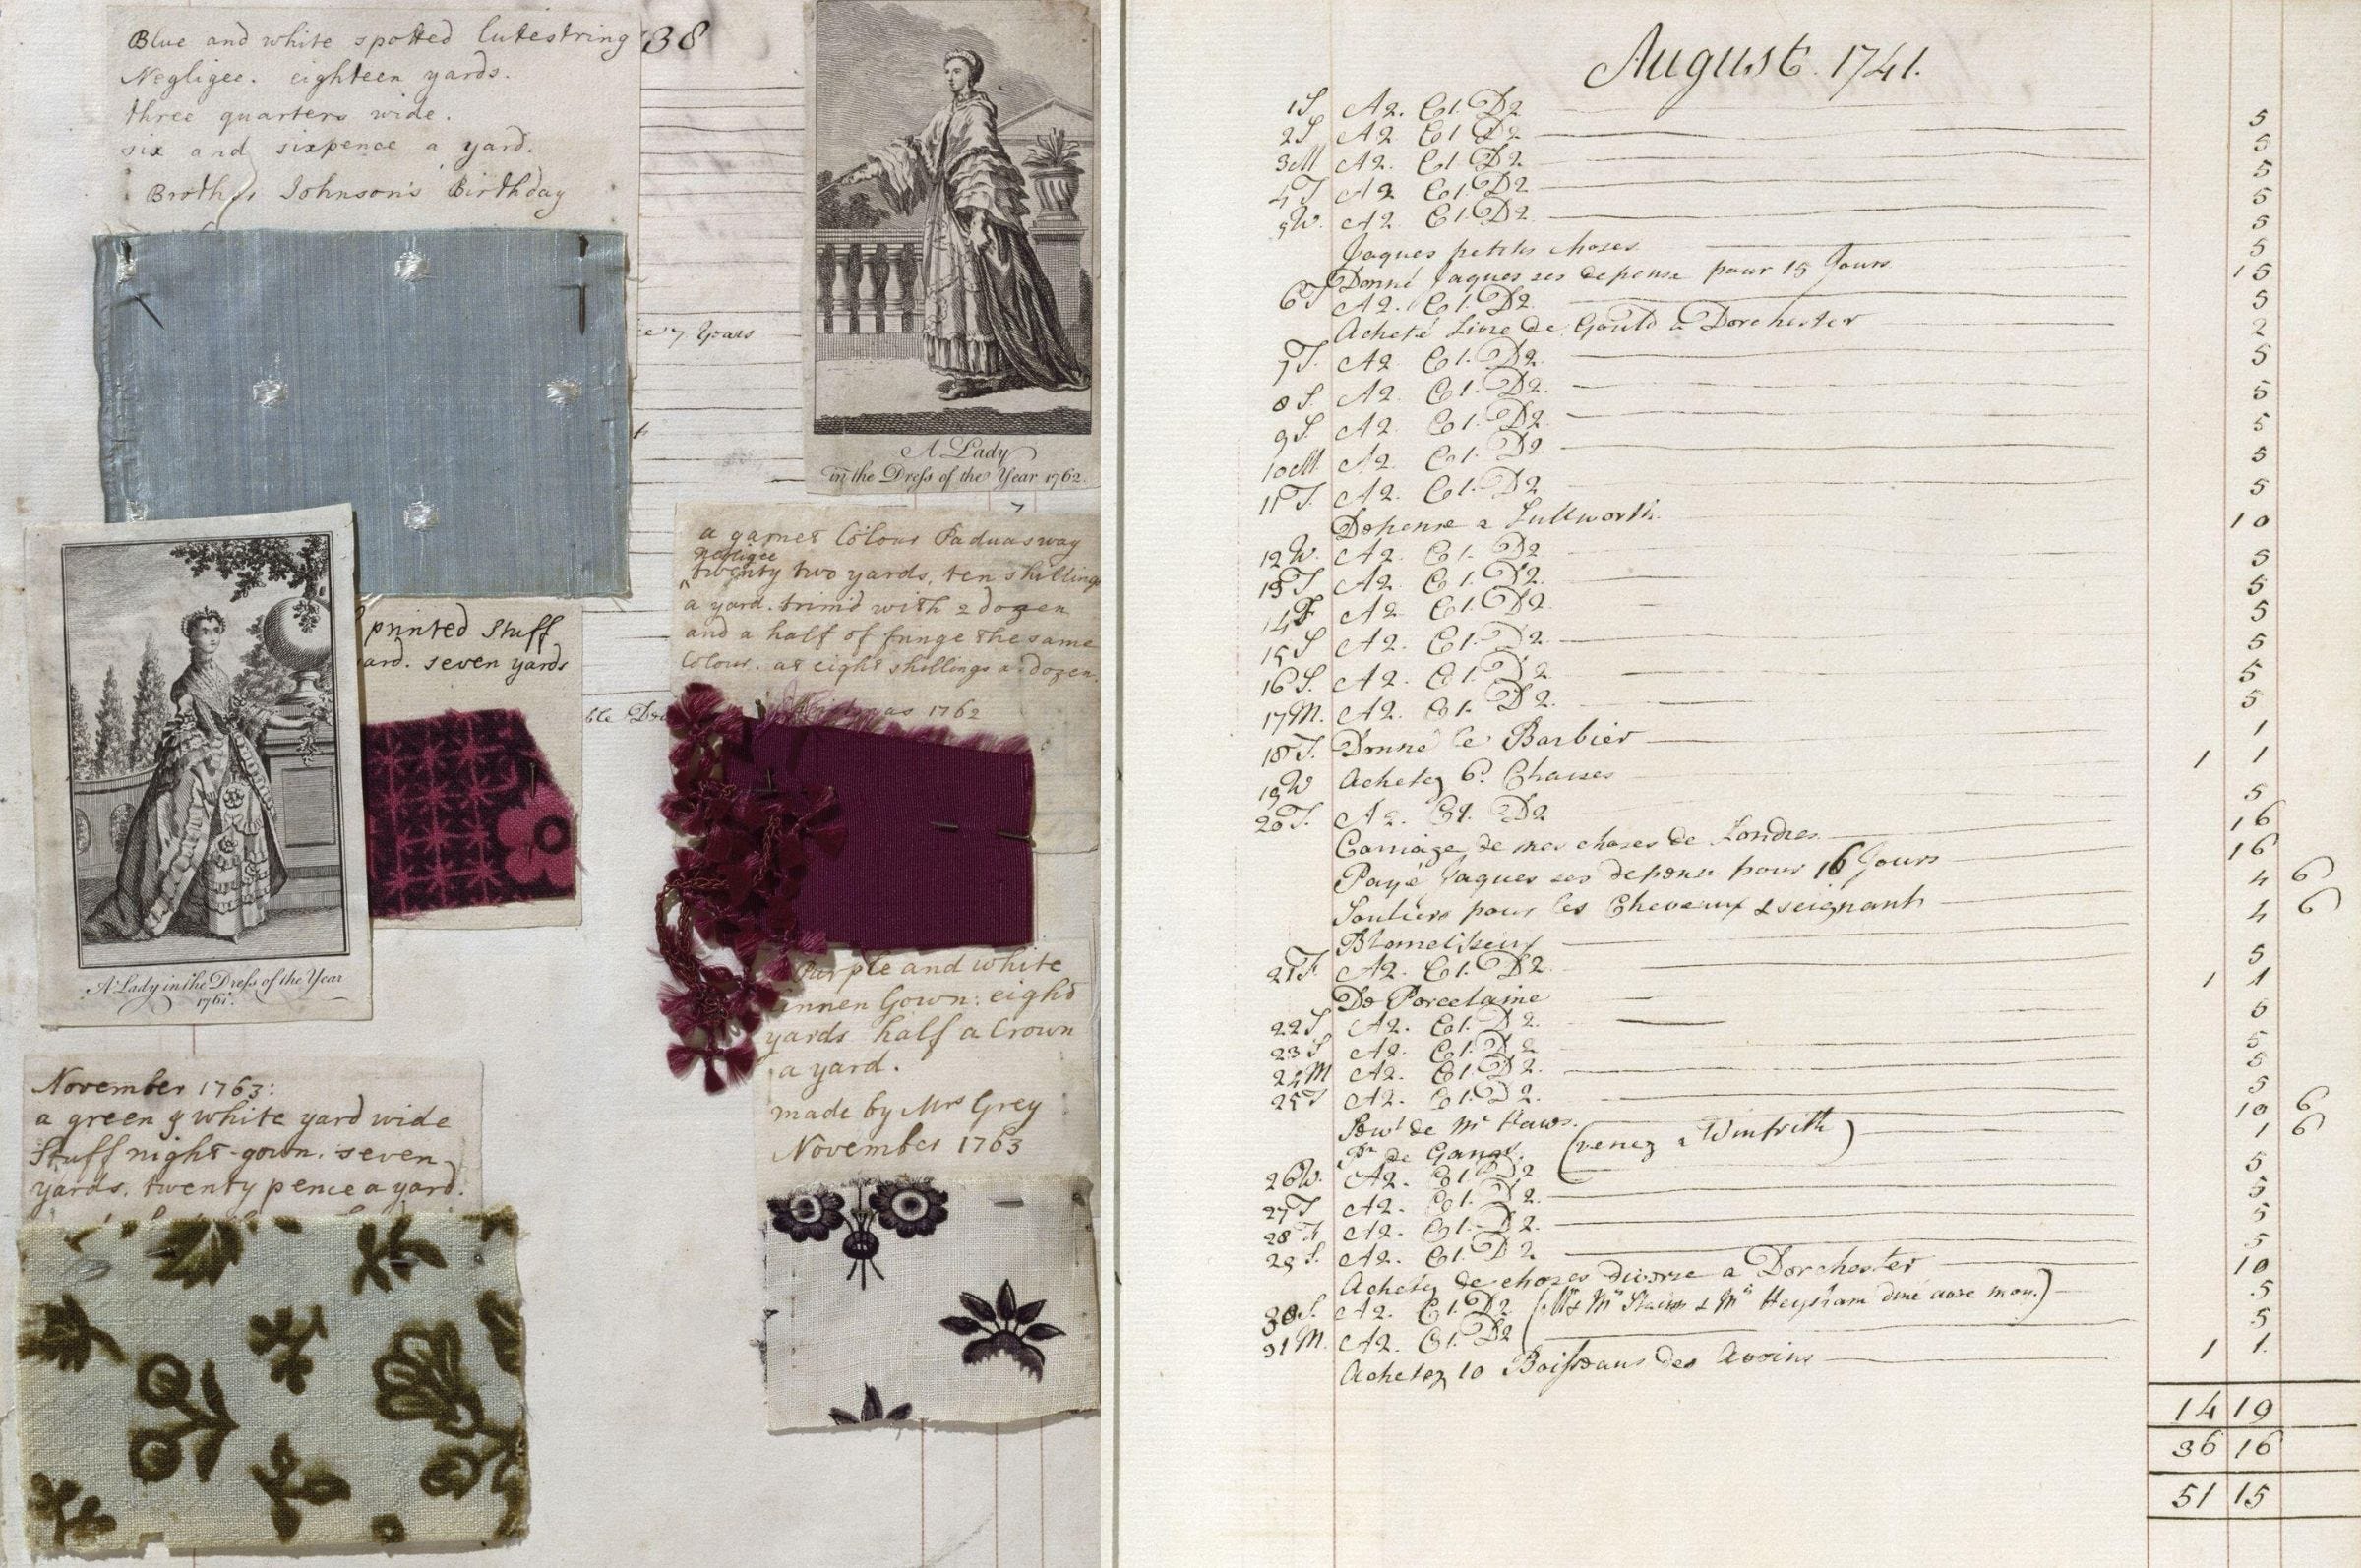 Blue and white spotted lutestring
Negligee. eighteen yards.
three quarters wide.
six and sixpence a yard.
Brother Johnson's Birthday
38
e 7 Years
A Lady
in the Dress of the Year 1762.
a garnet Colour Paduasway
negligee
^ twenty two yards, ten shillings
a yard. trim'd with 2 dozen
and a half of fringe the same
Colour. at eight shillings a dozen.
1762
printed Stuff
ard. seven yards
ble
A Lady in the Dress of the Year
1761.
Purple and white
linnen Gown: eight
yards half a Crown
a yard.
made by Mrs Grey
November 1763
November 1763:
a green & white yard wide
Stuff night-gown. seven
yards. twenty pence a yard.
August. 1741.
1S. A2. C1. D2 5
2S A2 C1 D2 5
3M A2. C1. D2 5
4T. A2 C1. D2 5
5W. A2 C1. D2 5
Jaques petits choses 5
Donné Jaques ses depense pour 15 Jours 15
6T A2. C1. D2 5
Acheté Livre de Gould a Dorchester 2
7T. A2 C1. D2 5
8S. A2 C1. D2. 5
9S. A2 C1. D2. 5
10M. A2 C1. D2. 5
11T. A2. C1. D2 5
Depense a Lullworth. 10
12W. A2 C1. D2 5
13T A2 C1. D2. 5
14F A2 C1. D2. 5
15S A2. C1. D2. 5
16S. A2. C1. D2 5
17M. A2. C1. D2. 5
18T. Donné le Barbier 1
19W Achetez 6. Chaises 1 1
20T. A2. C1. D2 5
Carriage de mes choses de Londres 16
Payé Jaques ses depense pour 16 Jours 16
Souliers pour les Chevaux & seignant 4 6
4 6
21F. A2. C1. D2. 5
De Porcelaine 1 1
22S A2. C1. D2. 5
23S A2. C1. D2 5
24M A2. C1. D2. 5
25T A2. C1. D2. 5
de Mr Haws. 10 6
de (venez a Winfrith) 1 6
26W. A2. C1 D2 5
27T A2. C1. D2. 5
28F A2. C1. D2. 5
29S. A2. C1. D2 5
Achetez de choses diverse a Dorchester 10
30S. A2. C1. D2 Heysham diné avec moy.) 5
31M. A2. C1. D2 5
Achetez 10 Boisseaus des Avoins 1 1.
14 19
36 16
51 15